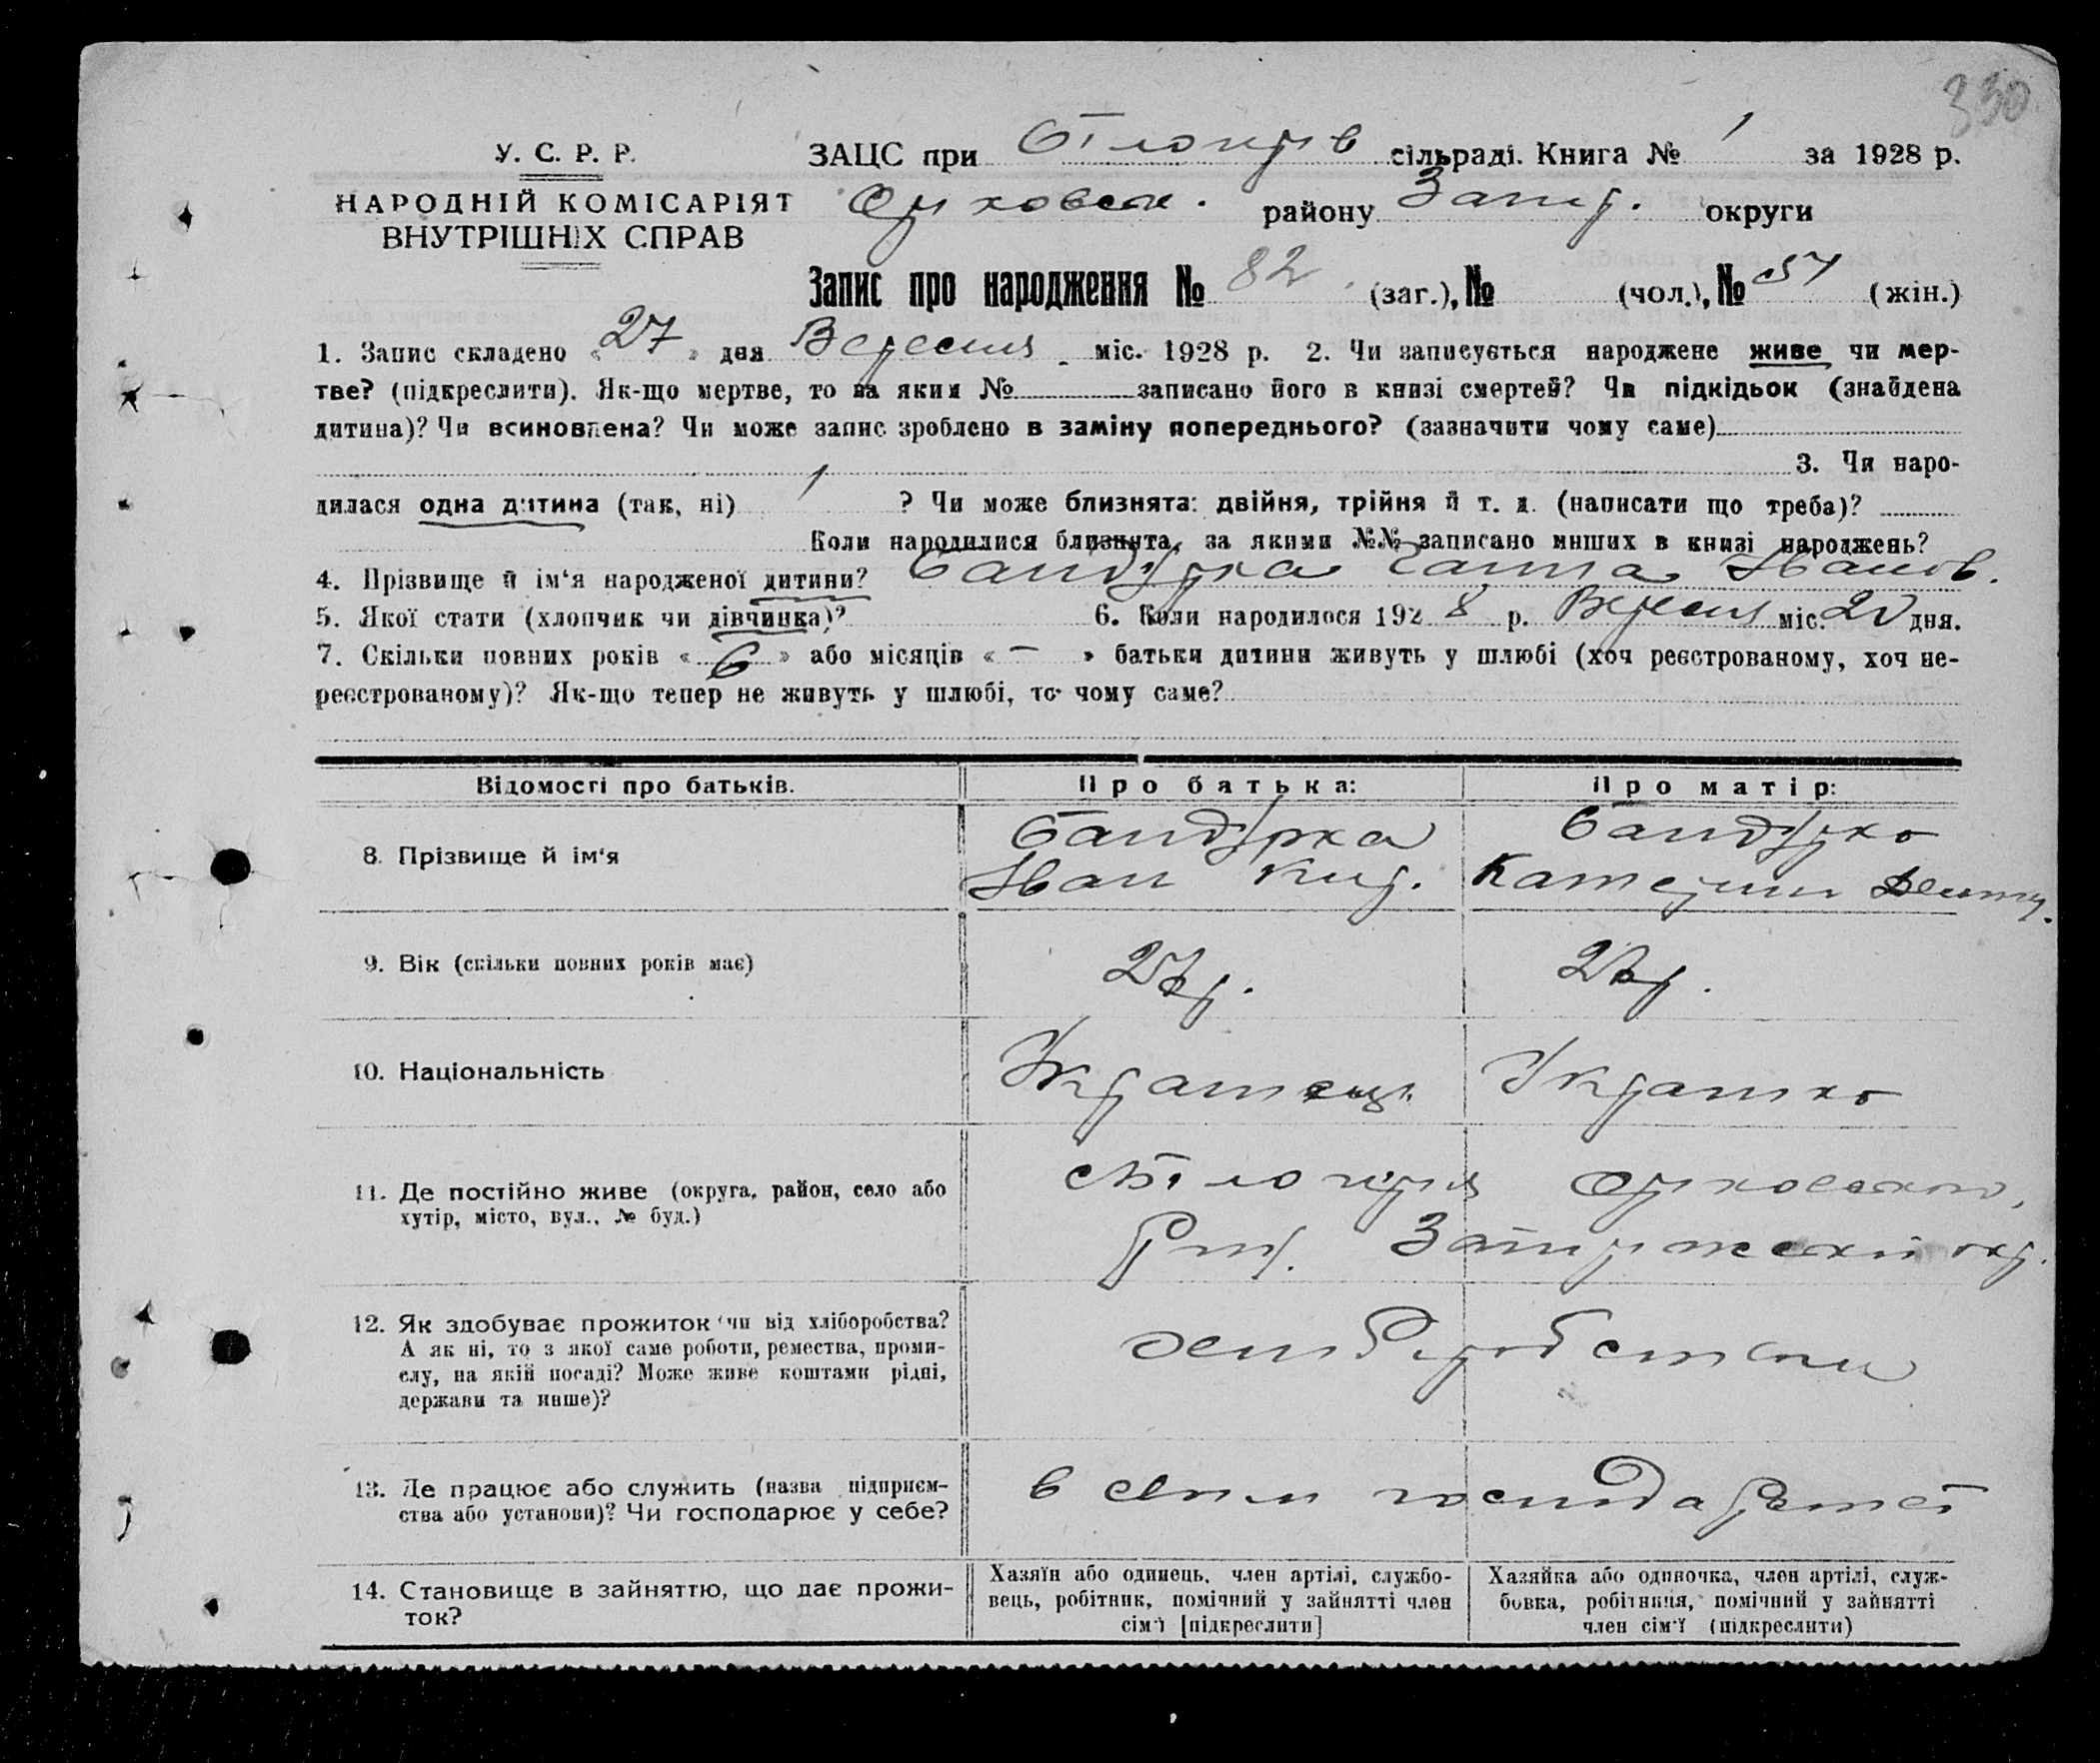 330
У. С. Р. Р.
НАРОДНІЙ КОМІСАРІЯТ
ВНУТРІШНІХ СПРАВ
ЗАЦС при Білогірїв сільраді. Книга № 1 за 1928 р.
Оріховськ. району Запор. округи
Запис про народження № 82 (заг.), № (чол.), № 37 (жін.)
1. Запис складено « 27 » дня Вересня міс. 1928 р. 2. Чи записується народжене живе чи мер-
тве? (підкреслити). Як-що мертве, то за яким № записано його в книзі смертей? Чи підкідьок (знайдена
дитина)? Чи всиновлена? Чи може запис зроблено в заміну попереднього? (зазначити чому саме)
3. Чи наро-
дилася одна дитина (так, ні) 1 ? Чи може близнята: двійня, трійня й т. д. (написати що треба)?
Коли народилися близнята, за якими №№ записано инших в книзі народжень?
4. Прізвище й ім‘я народженої дитини? Бандурка Ганна Іванов.
5. Якої стати (хлопчик чи дівчинка)? 6. Коли народилося 192 8 р. Вересня міс. 20 дня.
7. Скільки повних років « 6 » або місяців « – » батьки дитини живуть у шлюбі (хоч реєстрованому, хоч не-
реєстрованому)? Як-що тепер не живуть у шлюбі, то чому саме?
Відомості про батьків. Про батька: Про матір:
8. Прізвище й ім‘я Бандурка Бандурко
Іван Кир. Катерина
9. Вік (скільки повних років має) 27 р.
10. Національність Українець Українко
11. Де постійно живе (округа, район, село або
хутір, місто, вул., № буд.)
с Білогірія Оріховского,
Рай. Запоріжської окр.
12. Як здобуває прожиток (чи від хліборобства?
А як ні, то з якої саме роботи, ремества, проми-
слу, на якій посаді? Може живе коштами рідні,
держави та инше)?
хліборобством
13. Де працює або служить (назва підприєм-
ства або установи)? Чи господарює у себе?
в своїм господарстві
14. Становище в зайняттю, що дає прожи-
ток?
Хазяїн або одинець, член артілі, службо-
вець, робітник, помічний у зайнятті член
сім‘ї [підкреслити]
Хазяйка або одиночка, член артілі, служ-
бовка, робітниця, помічний у зайнятті
член сім‘ї (підкреслити)